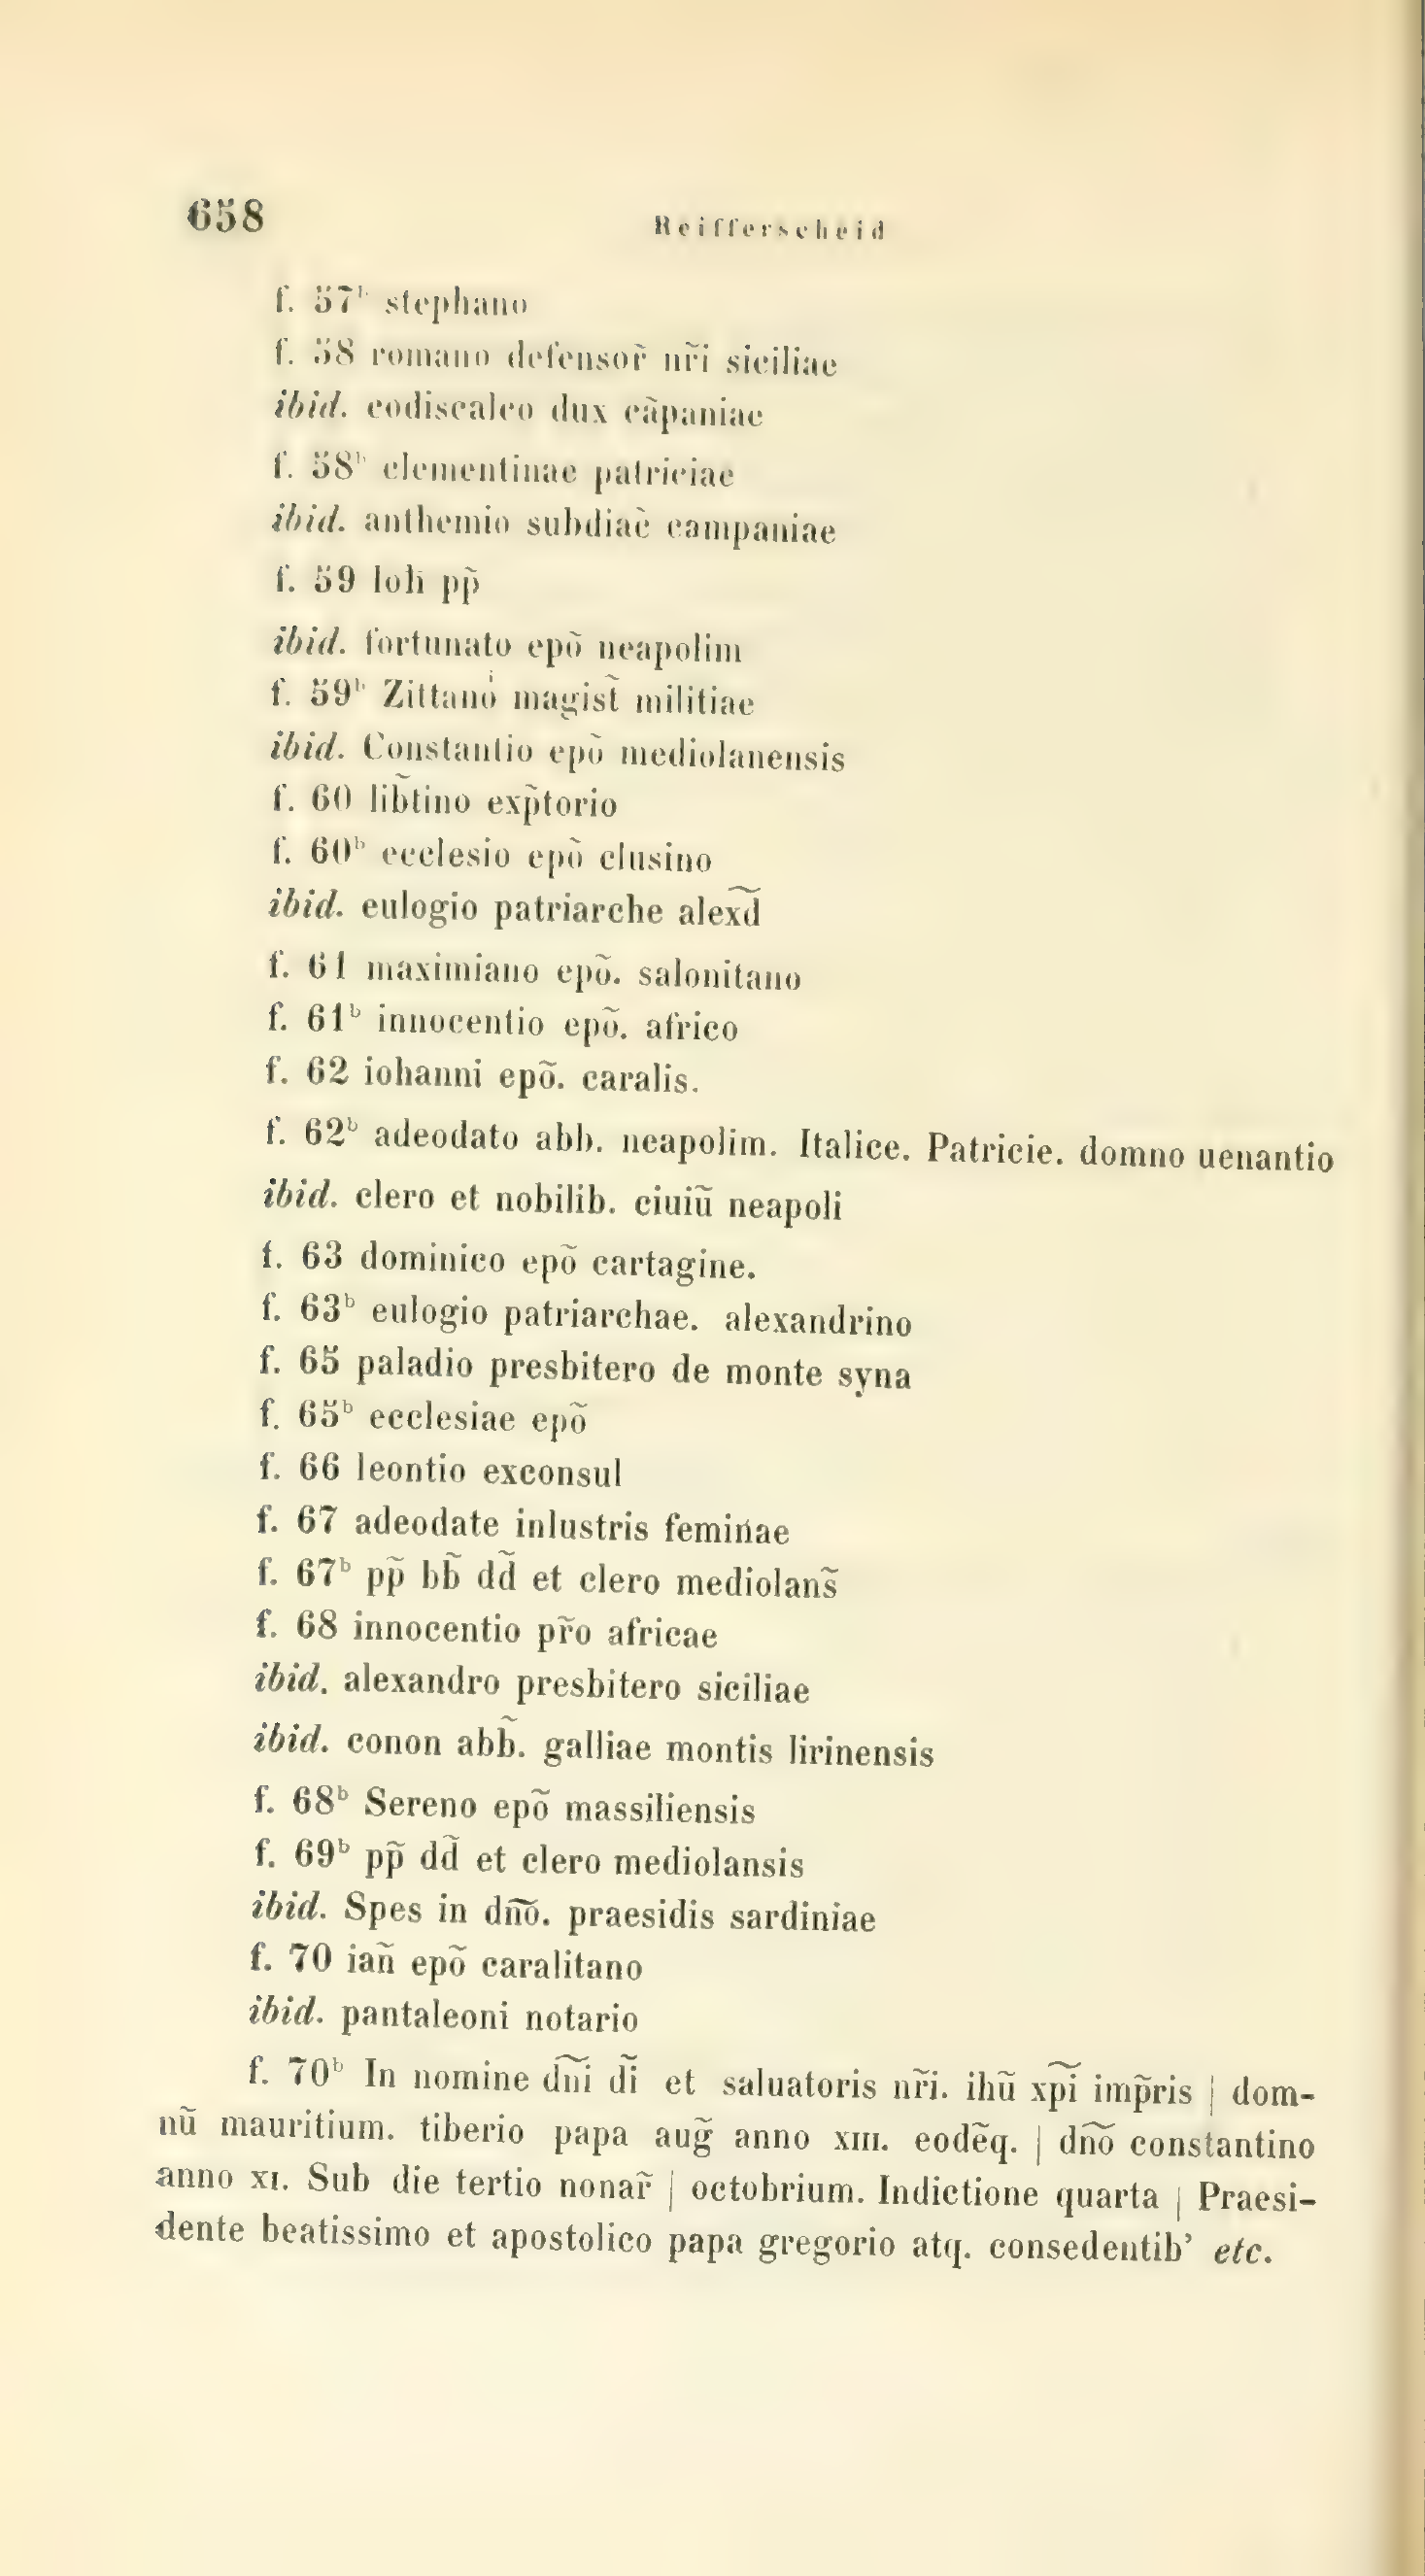 658 Reifferscheid
f. 57ᵇ stephano
f. 58 romano defensor̃ nr̃i siciliae
ibid. codiscalco dux cãpaniae
f. 58ᵇ clementinae patriciae
ibid. anthemio subdiac̃ campaniae
f. 59 pp̃
ibid. fortunato epõ neapolim
f. 59ᵇ Zittano magist̃ militiae
ibid. Constantio epõ mediolanensis
f. 60 lib̃tino exp̃torio
f. 60ᵇ ecclesio epõ clusino
ibid. eulogio patriarche alex͠d
f. 61 maximiano epõ. salonitano
f. 61ᵇ innocentio epõ. africo
f. 62 iohanni epõ. caralis.
f. 62ᵇ adeodato abb. neapolim. Italice. Patricie. domno uenantio
ibid. clero et nobilib. ciuiũ neapoli
f. 63 dominico epõ cartagine.
f. 63ᵇ eulogio patriarchae. alexandrino
f. 65 paladio presbitero de monte syna
f. 65ᵇ ecclesiae epõ
f. 66 leontio exconsul
f. 67 adeodate inlustris feminae
f. 67ᵇ pp̃ bb̃ dd̃ et clero mediolans̃
f. 68 innocentio pr̃o africae
ibid. alexandro presbitero siciliae
ibid. conon abb̃. galliae montis lirinensis
f. 68ᵇ Sereno epõ massiliensis
f. 69ᵇ pp̃ dd̃ et clero mediolansis
ibid. Spes in dn͠o. praesidis sardiniae
f. 70 iañ epõ caralitano
ibid. pantaleoni notario
f. 70ᵇ In nomine dn͠i dĩ et saluatoris nr̃i. ihũ xp͠i imp̃ris | dom-
nũ mauritium. tiberio papa aug̃ anno xııı. eodẽq. | dn͠o constantino
anno xı. Sub die tertio nonar̃ | octobrium. Indictione quarta | Praesi-
dente beatissimo et apostolico papa gregorio atq. consedentib’ etc.